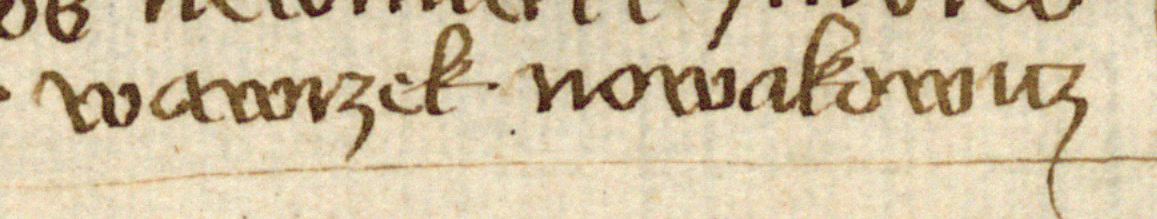 wawrzek nowakowicz